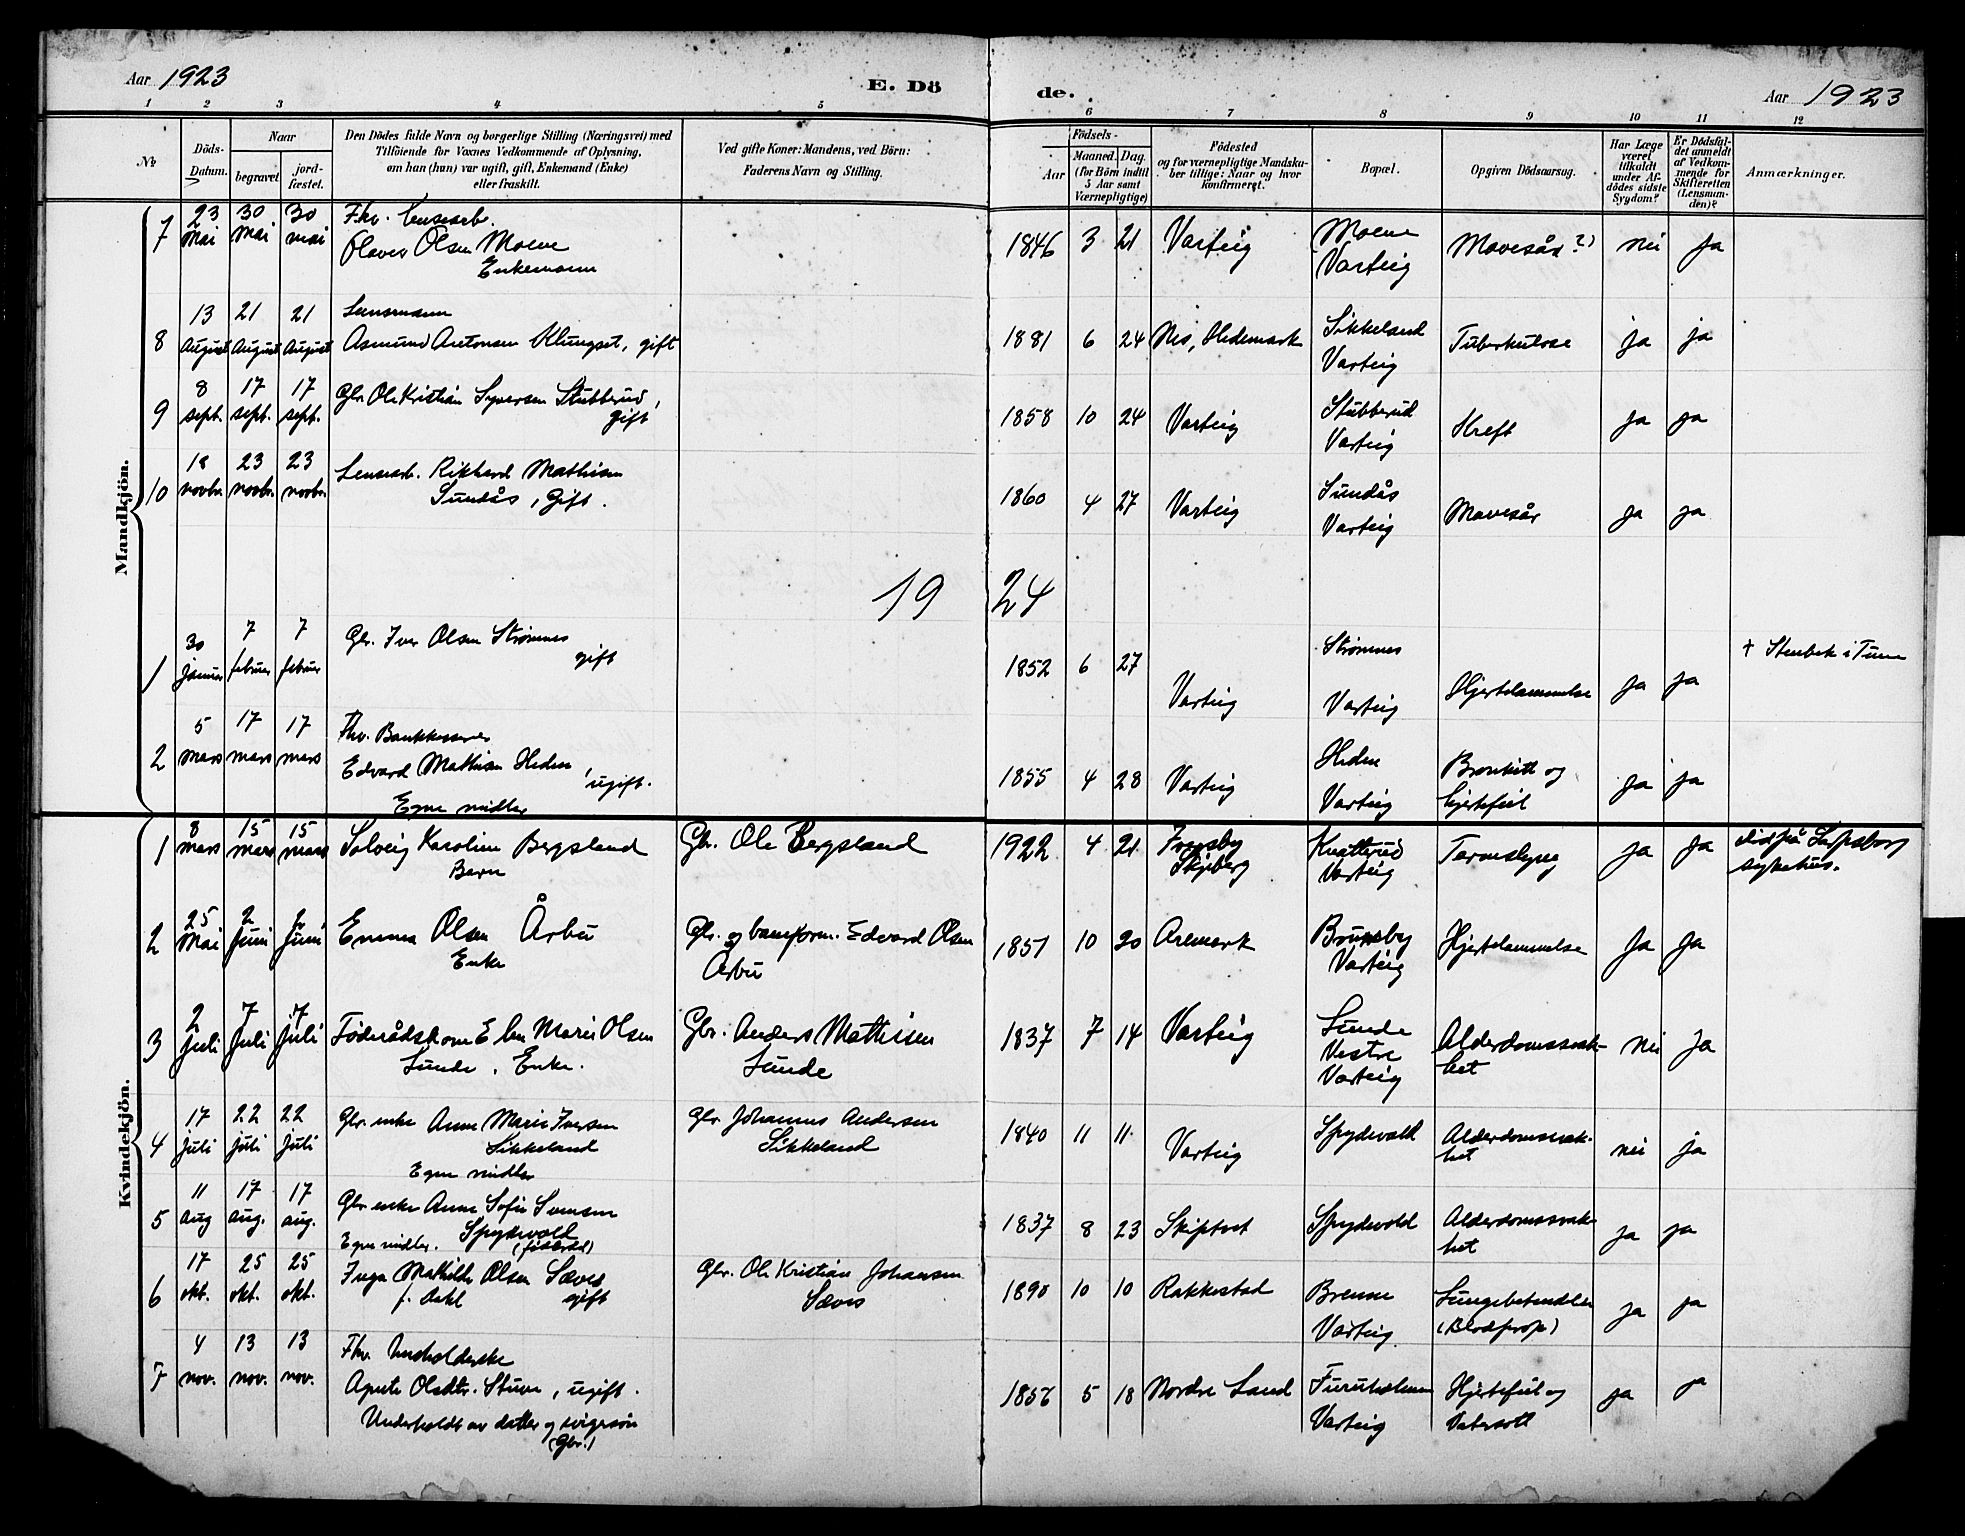 Aar 1923
E. Dö de.
Aar 1923
1 2 3 4 5 6 7 8 9 10 11 12
No
Döds-
Datum.
Naar
begravet
jord-
fæstet.
Den Dödes fulde Navn og borgerlige Stilling (Næringsvei) med
Tilföiende for Voxnes Vedkommende af Oplysning,
om han (hun) var ugift, gift, Enkemand (Enke)
eller fraskilt.
Ved gifte Koner: Mandens, ved Börn:
Faderens Navn og Stilling.
Födsels-
Aar
Maaned. Dag.
(for Börn indtil
5 Aar samt
Værnepligtige)
Födested
og for værnepligtige Mandska-
ber tillige: Naar og hvor
konfirmeret.
Bopæl.
Opgiven Dödsaarsag.
Har Læge
været
tilkaldt
under Af-
dödes sidste
Sygdom?
Er Dödsfal-
det anmeldt
af Vedkom-
mende for
Skifteretten
(Lensman-
den)?
Anmærkninger.
Mandkjön.
7 23 Mai 30 mai 30 mai
Fhv. lensearb.
Olaves Olsen Moene
Enkemann
1846 3 21 Varteig
Moene
Varteig
Mavesår ?) nei Ja
8 13 August 21 August 21 August
Lensmann
Asmund Antonsen Klungset, gift
1881 6 24 Nes, Hedemark
Sikkeland
Varteig
Tuberkulose ja ja
9 8 sept. 17 sept. 17 sept.
Gbr. Ole Kristian Syversen Stubberud,
gift
1858 10 24 Varteig
Stubberud
Varteig
Kreft Ja ja
10 18 novbr. 23 novbr. 23 novbr.
Lensearb. Rikhard Mathisen
Sundås, Gift.
1860 4 27 Varteig
Sundås
Varteig
Mavesår ja ja
1924
1 30 januar 7 februar 7 februar
Gbr. Iver Olsen Strømnes
gift
1852 6 27 Varteig
Strømnes
Varteig
Hjertelammelse Ja Ja
+ Stenbek i Tune
2 5 mars 17 mars 17 mars
Fhv. Bankkasserer
Edvard Mathisen Heden, ugift.
Egne midler
1855 4 28 Varteig
Heden
Varteig
Bronkitt og
hjertefeil
Ja Ja
Kvindekjön.
1 8 mars 15 mars 15 mars
Solveig Karoline Bergsland
Barn
Gbr. Ole Bergsland
1922 4 21
Skjeberg
Knatterud
Varteig
Ja Ja
død på Sarpsborg
sykehus.
2 25 Mai 2 Juni 2 Juni
Emma Olsen Årbu
Enke
Gbr. og baneform. Edvard Olsen
Årbu
1851 10 20 Aremark
Brunsby
Varteig
Hjertelammelse Ja Ja
3 2 Juli 7 Juli 7 Juli
Føderådskone Elen Marie Olsen
Sunde. Enke.
Gbr. Anders Mathisen
Sunde
1837 7 14 Varteig
Sunde
Vestre
Varteig
Alderdomssvak-
het
nei Ja
4 17 Juli 22 juli 22 Juli
Gbr. enke Anne Marie Iversen
Sikkeland
Egne midler
Gbr. Johannes Andersen
Sikkeland
1840 11 11. Varteig
Spydevold
Alderdomssvak-
het
nei ja
5 11 aug 17 aug. 17 aug.
Gbr. enke Anne Sofie Svensen
Spydevold
Egne midler. (føderåd)
1837 8 23 Skiptvet
Spydevold
Alderdomssvak-
het
ja ja
6 17 okt. 25 okt. 25 okt.
Inga Mathilde Olsen Sæves
f. Dahl gift
Gbr. Ole Kristian Johansen
Sæves
1890 10 10 Rakkestad
Brenne
Varteig
Lungebetendelse
(Blodprop)
ja ja
7 4 nov. 13 nov. 13 nov.
Fhv. husholderske
Agnete Olsdtr. Stuen, ugift.
Underholdt av datter og svigersøn
(Gbr.)
1857 5 18 Nordre Land
Furuholmen
Varteig
Hjertefeil og
Vatersott
ja ja